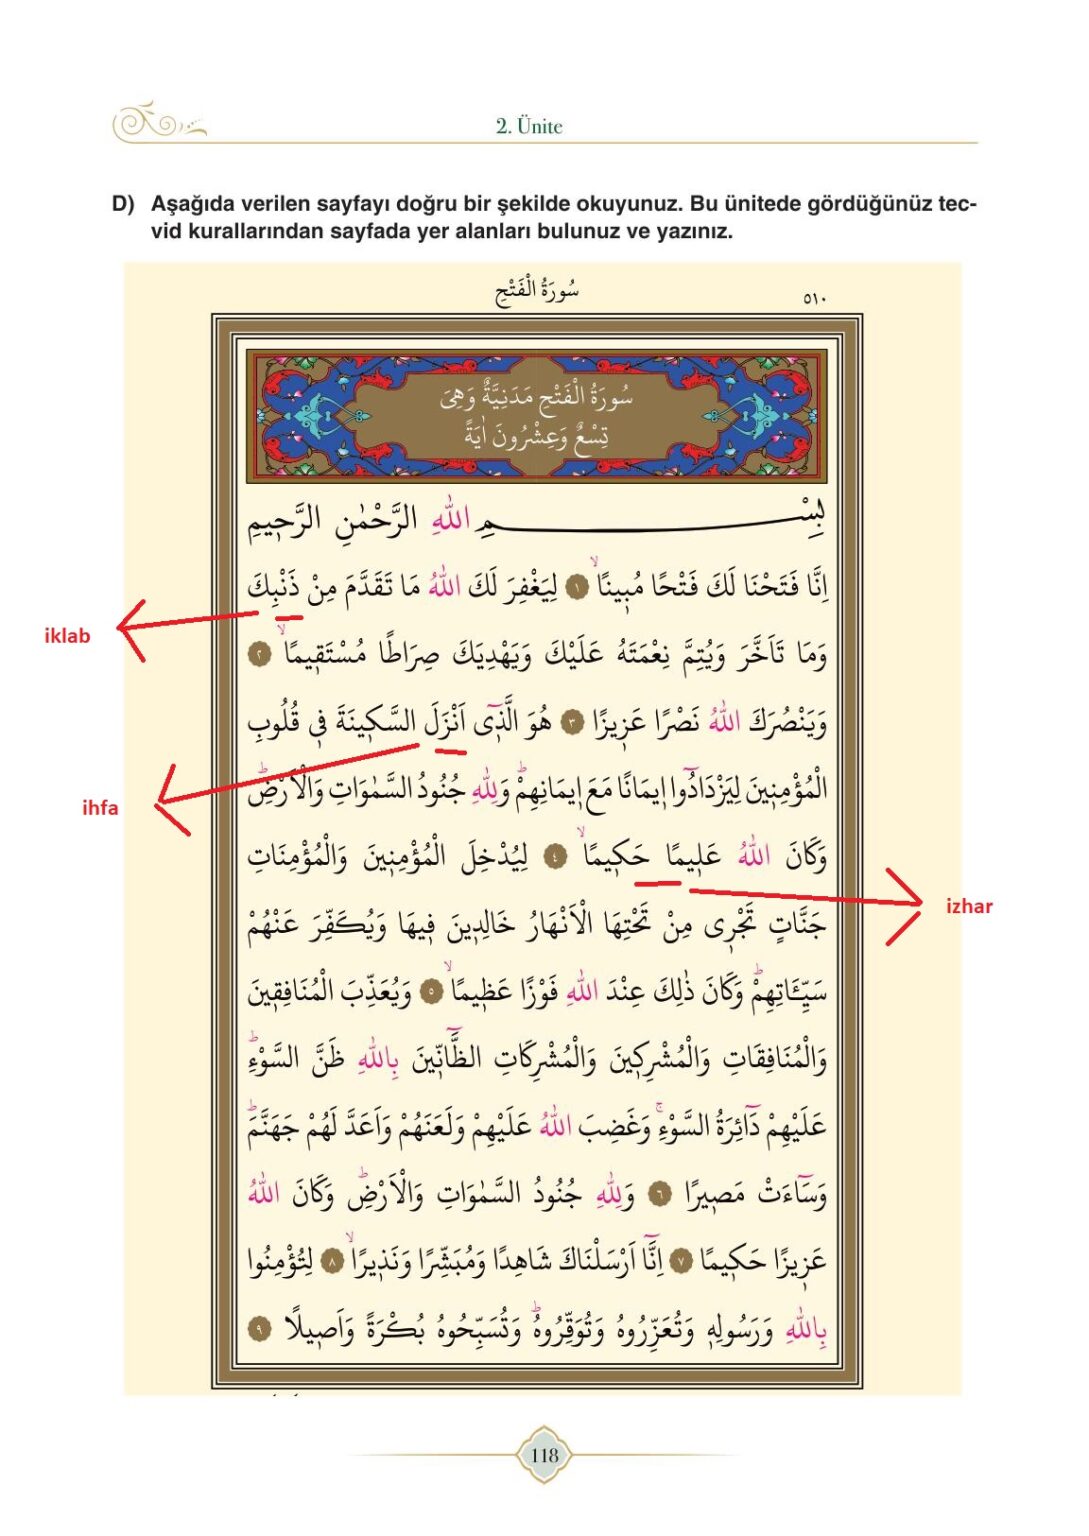 2. Ünite
D) Aşağıda verilen sayfayı doğru bir şekilde okuyunuz. Bu ünitede gördüğünüz tec-
vid kurallarından sayfada yer alanları bulunuz ve yazınız.
سُورَةُ الْفَتْحِ
٥١٠
سُورَةُ الْفَتْحِ مَدَنِيَّةٌ وَهِىَ
تِسْعٌ وَعِشْرُونَ اٰيَةً
بِسْمِ اللّٰهِ الرَّحْمٰنِ الرَّحٖيمِ
اِنَّا فَتَحْنَا لَكَ فَتْحًا مُبٖينًاۙ ١ لِيَغْفِرَ لَكَ اللّٰهُ مَا تَقَدَّمَ مِنْ ذَنْبِكَ
iklab
وَمَا تَاَخَّرَ وَيُتِمَّ نِعْمَتَهُ عَلَيْكَ وَيَهْدِيَكَ صِرَاطًا مُسْتَقٖيمًاۙ ٢
وَيَنْصُرَكَ اللّٰهُ نَصْرًا عَزٖيزًا ٣ هُوَ الَّذٖٓى اَنْزَلَ السَّكٖينَةَ فٖى قُلُوبِ
ihfa
الْمُؤْمِنٖينَ لِيَزْدَادُٓوا اٖيمَانًا مَعَ اٖيمَانِهِمْؕ وَلِلّٰهِ جُنُودُ السَّمٰوَاتِ وَالْاَرْضِؕ
وَكَانَ اللّٰهُ عَلٖيمًا حَكٖيمًاۙ ٤ لِيُدْخِلَ الْمُؤْمِنٖينَ وَالْمُؤْمِنَاتِ
izhar
جَنَّاتٍ تَجْرٖى مِنْ تَحْتِهَا الْاَنْهَارُ خَالِدٖينَ فٖيهَا وَيُكَفِّرَ عَنْهُمْ
سَيِّـَٔاتِهِمْؕ وَكَانَ ذٰلِكَ عِنْدَ اللّٰهِ فَوْزًا عَظٖيمًاۙ ٥ وَيُعَذِّبَ الْمُنَافِقٖينَ
وَالْمُنَافِقَاتِ وَالْمُشْرِكٖينَ وَالْمُشْرِكَاتِ الظَّٓانّٖينَ بِاللّٰهِ ظَنَّ السَّوْءِؕ
عَلَيْهِمْ دَٓائِرَةُ السَّوْءِۚ وَغَضِبَ اللّٰهُ عَلَيْهِمْ وَلَعَنَهُمْ وَاَعَدَّ لَهُمْ جَهَنَّمَؕ
وَسَٓاءَتْ مَصٖيرًا ٦ وَلِلّٰهِ جُنُودُ السَّمٰوَاتِ وَالْاَرْضِؕ وَكَانَ اللّٰهُ
عَزٖيزًا حَكٖيمًا ٧ اِنَّٓا اَرْسَلْنَاكَ شَاهِدًا وَمُبَشِّرًا وَنَذٖيرًاۙ ٨ لِتُؤْمِنُوا
بِاللّٰهِ وَرَسُولِهٖ وَتُعَزِّرُوهُ وَتُوَقِّرُوهُؕ وَتُسَبِّحُوهُ بُكْرَةً وَاَصٖيلًا ٩
118